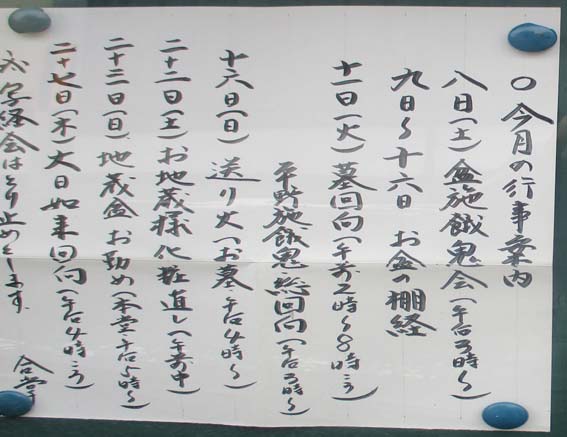 〇今月の行事案内
八日(土)盆施餓鬼会(午后3時〜)
九日〜十六日 お盆の棚経
十一日(火)墓回向(午前2時〜8時ころ)
平野施餓鬼総回向(午后3時〜)
十六日(日)送り火(お墓 午后4時〜)
二十二日(土)お地蔵様化粧直し(午前中)
二十三日(日)地蔵盆お勤め(本堂 午后5時〜)
二十七日(木)大日如来回向(午后4時ころ)
写経会はとり止めとします。
合掌